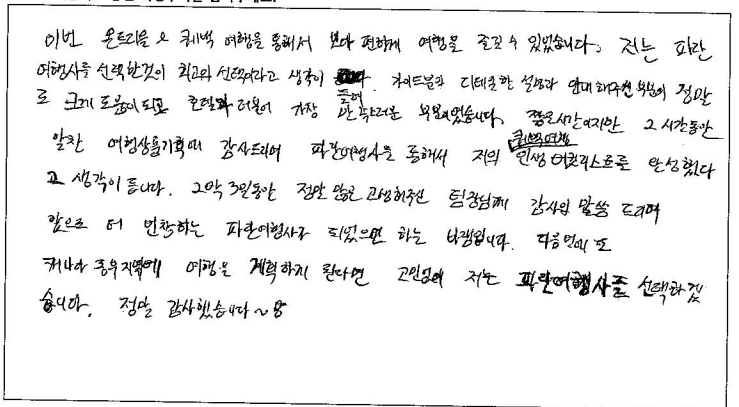 이번 몬트리올 & 퀘백 여행을 통해서 보다 편하게 여행을 즐길 수 있었습니다. 저는 파란
여행사를 선택한것이 최고의 선택이라고 생각이 듭니다. 가이드분과 디테일한 설명과 안내해주신 부분이 정말
로 크게 도움이 되고 호텔과 더불어 가장 만족스러운 부분이었습니다. 짧은시간이지만 그 시간동안
알찬 여행상품기획에 감사드리며 파란여행사를 통해서 저의 퀘백여행 인생 버킷리스트를 완성했다
고 생각이 듭니다. 2박 3일동안 정말 많은 고생해주신 팀장님께 감사의 말씀 드리며
앞으로 더 번창하는 파란여행사가 되었으면 하는 바램입니다. 다음번에 또
캐나다 동부지역에 여행을 계획하게 된다면 고민없이 저는 파란여행사를 선택하겠
습니다. 정말 감사했습니다~